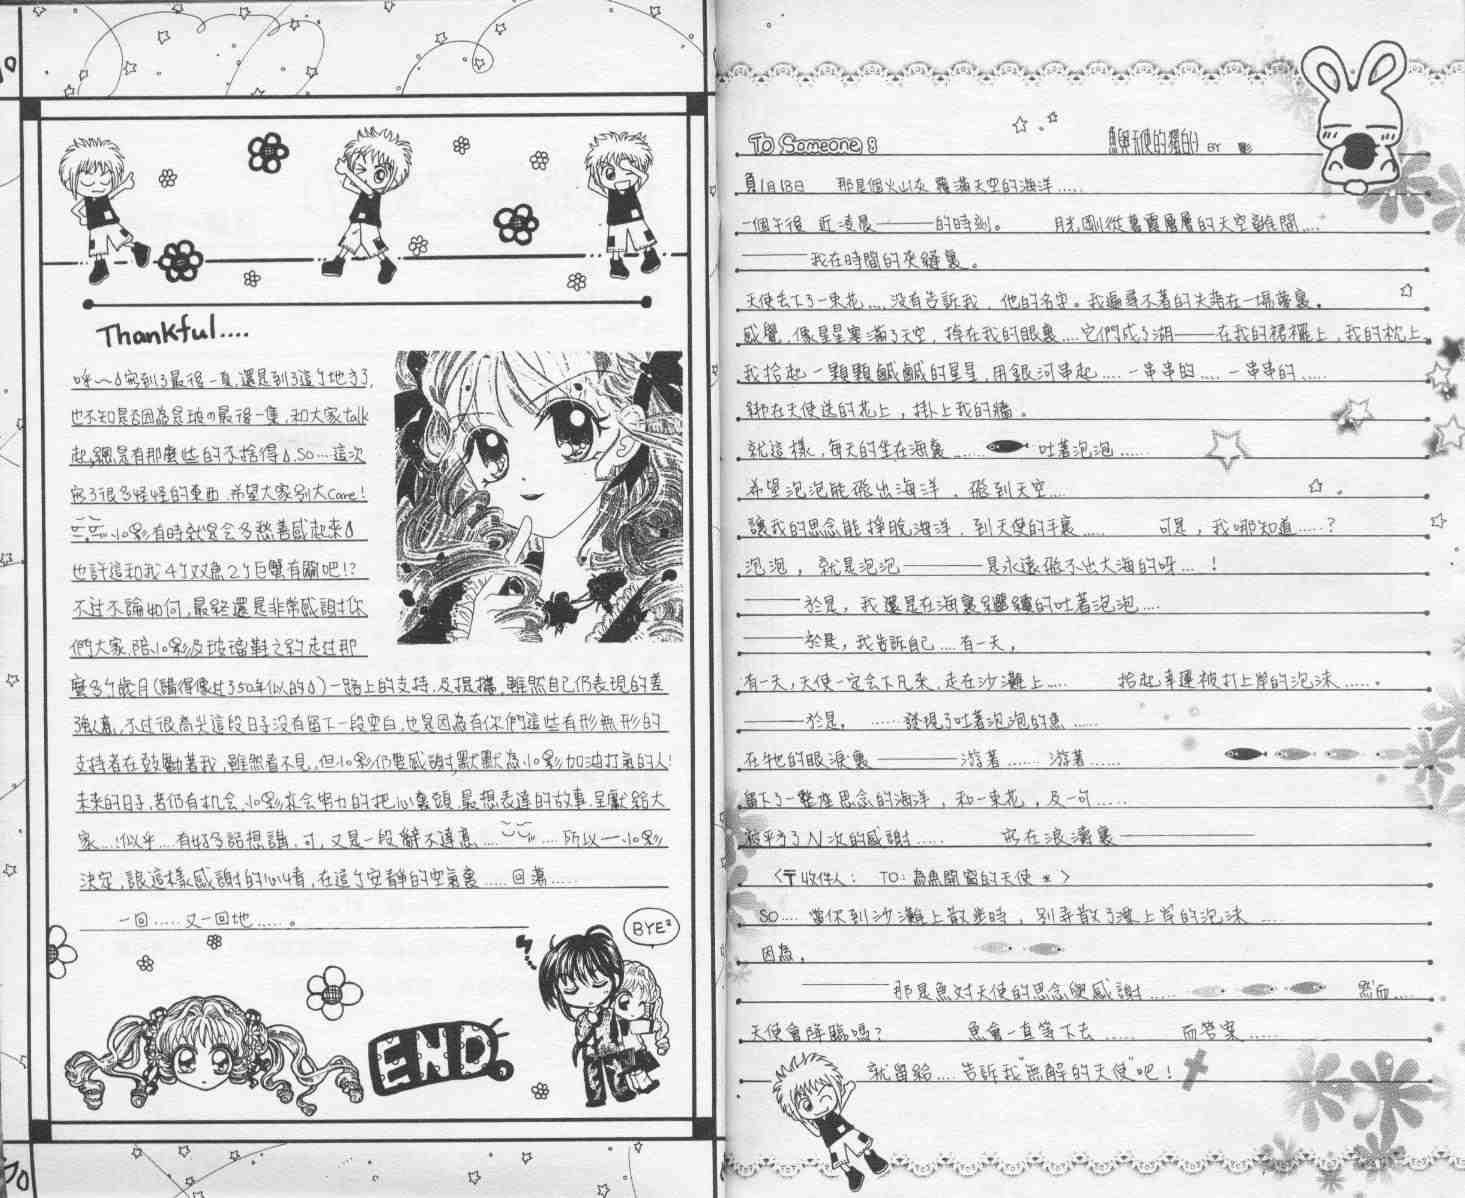 Thankful....
呼~~寫到了最後一頁,還是到了這个地方了,
也不知是否因為是玻の最後一集,和大家talk
起,總是有那麼些的不捨得。So....這次
寫了很多怪怪的東西,希望大家別太care!
小影有時就是会多愁善感起來
也許這和我4个双魚2个巨蟹有關吧!?
不过不論如何,最終還是非常感謝你
們大家,陪小影及玻璃鞋之約走过那
麼多个歲月(講得像过了50年似的)一路上的支持,及提攜,雖然自己仍表現的差
強人意,不过很高兴這段日子没有留下一段空白,也是因為有你們這些有形無形的
支持者在鼓勵著我,雖然看不見,但小影仍要感謝默默為小影加油打氣的人!
未來的日子,若仍有机会,小影會努力的把心裏頭,最想表達的故事,呈獻給大
家...!似乎....有好多話想講,可,又是一段辭不達意..... ....所以一小影
決定,讓這樣感謝的心情,在這个安靜的空氣裏.....回蕩.....
一回.....又一回地......。
BYE²
END.
To Someone:
魚與天使的獨白 BY 影
1月13日 那是個火山灰覆滿天空的海洋.....
一個午後 近凌晨———的時刻。 月光剛從層層的天空離開....
———我在時間的夾縫裏。
天使丟下了一束花....没有告訴我,他的名字。我遍尋不著的失落在一場夢裏。
感覺,像星星塞滿了天空,掉在我的眼裏....它們成了湖——在我的裙襬上,我的枕上
我拾起一顆顆鹹鹹的星星,用銀河串起.....一串串的.....一串串的......
綁在天使送的花上,掛上我的牆。
就這樣,每天的坐在海裏...... 吐著泡泡......
希望泡泡能飛出海洋,飛到天空....
讓我的思念能掙脫海洋,到天使的手裏..... 可是,我哪知道.....?
泡泡,就是泡泡————是永遠飛不出大海的呀....!
———於是,我還是在海裏繼續的吐著泡泡....
———於是,我告訴自己....有一天,
有一天,天使一定会下凡來,走在沙灘上..... 拾起幸運被打上岸的泡沫......。
———於是, ......發現了吐著泡泡的魚.....
在牠的眼淚裏————游著......游著......
留下了一整座思念的海洋,和一束花,及一句......
N次的感謝..... 在浪濤裏——————
〈〒收件人: TO:為魚開窗的天使*〉
SO....當你到沙灘上散步時,別弄散了漫上岸的泡沫.....
因為,
————那是魚对天使的思念與感謝..... 然而....
天使會降臨嗎? 魚會一直等下去...... 而答案......
就留給....告訴我"無解的天使"吧!